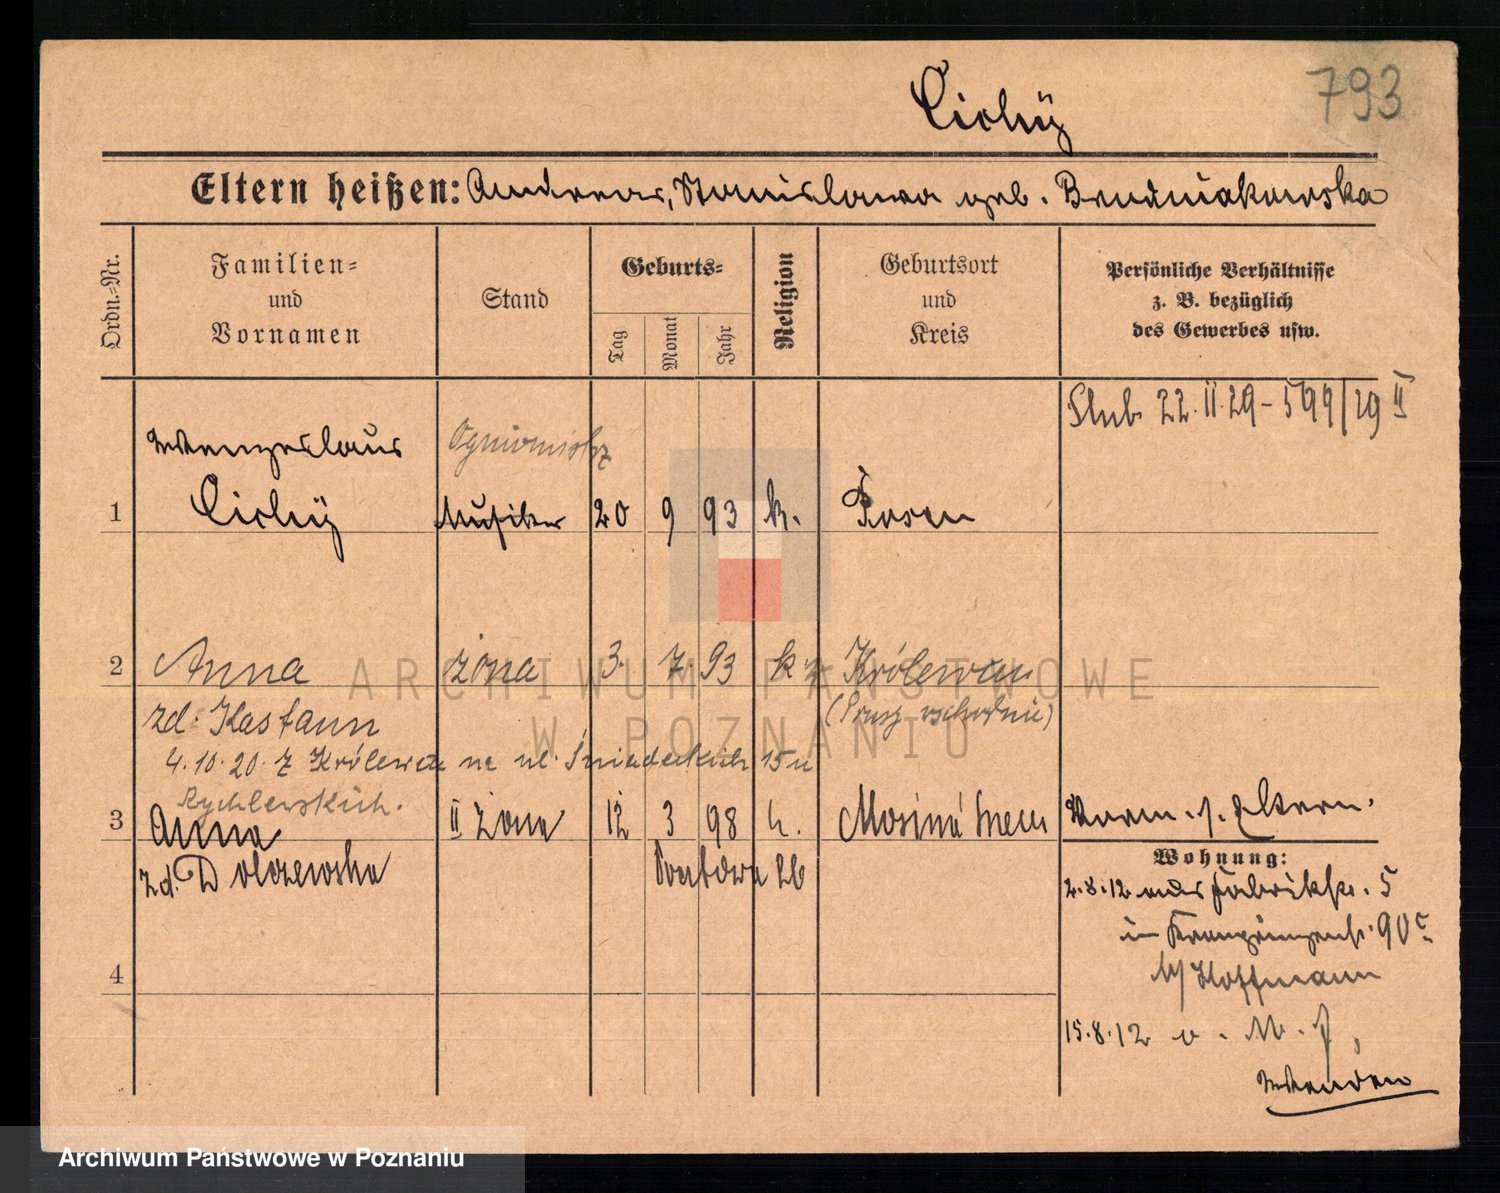 793
Cichÿ
Eltern heißen: Andreas, Stanislawa geb. Brudniakowska
Ordn.-Nr.
Familien-
und
Vornamen
Stand
Geburts-
Tag
Monat
Jahr
Religion
Geburtsort
und
Kreis
Persönliche Verhältnisse
z. B. bezüglich
des Gewerbes usw.
Ślub 22.II.29 - 599/29 II
Wenzeslaus
Ogniomistrz
1 Cichÿ Musiker 20 9 93 k. Posen
2 Anna żona 3. 7. 93 k Królewiec
zd. Kastaun (Prusy wschodnie)
4.10.20 z Królewca na ul. Śniadeckich 15 u
Rychlewskich.
3 Anna II żona 12 3 98 k. Mosina Śrem
Worm. s. Eltern.
zd. Dolczewska
Wohnung:
2.8.12 aus Fabrikstr. 5
in Kronprinzenstr. 90c
b/ Hoffmann
4
15.8.12 v. M. J.
Wenden
ARCHIWUM PAŃSTWOWE
W POZNANIU
Archiwum Państwowe w Poznaniu